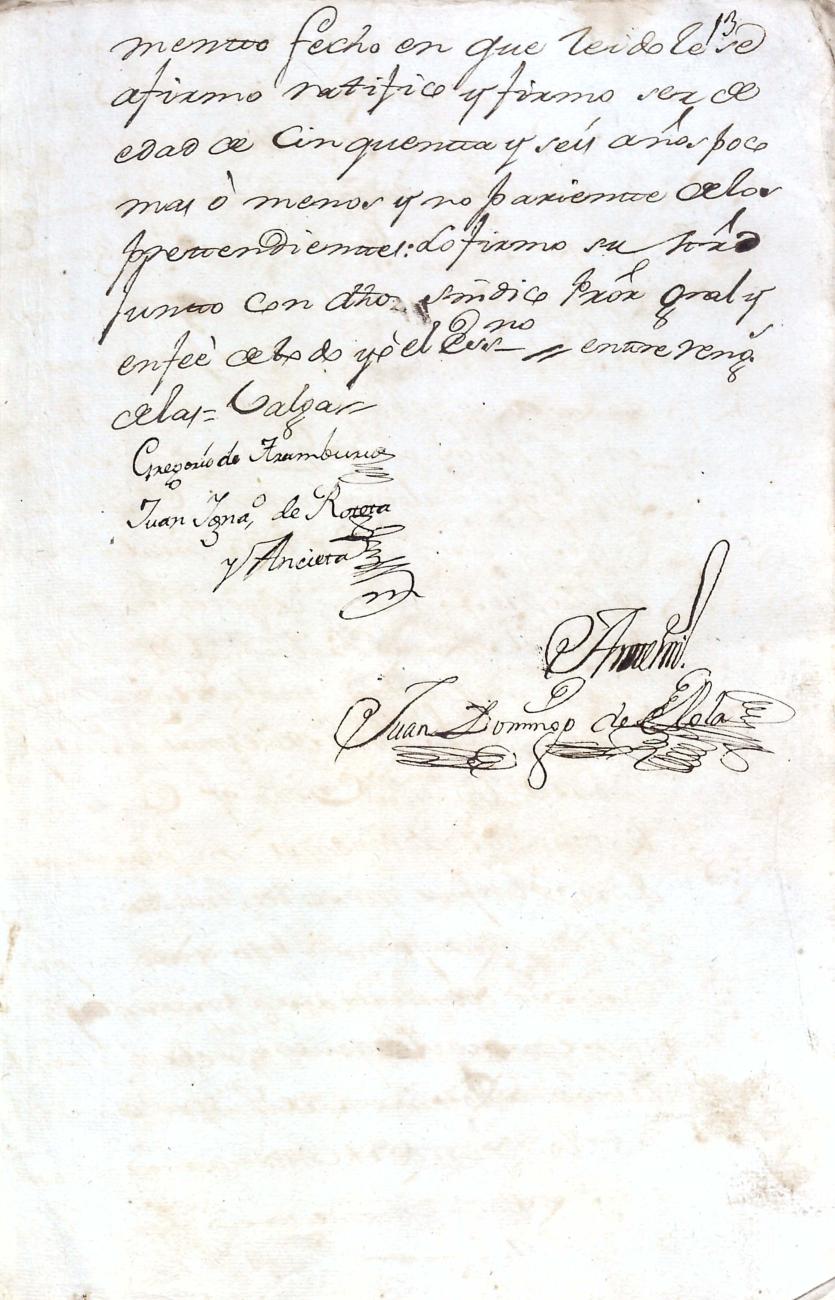 13
mentto fecho en que leidole se
afirmo ratifico y firmo ser de
edad de Cinquentta y seis años poco
mas ò menos y no parientte de los
prettendienttes: Lo firmo su mrd
Juntto con dho sindico Prór Gral y
en feè de todo yò el Essno = enttre reng.s
de las = Valga =
Gregorio de Aramburu
Juan Igna.o de Roteta
y Ancieta
Antemi.
Juan Domingo de